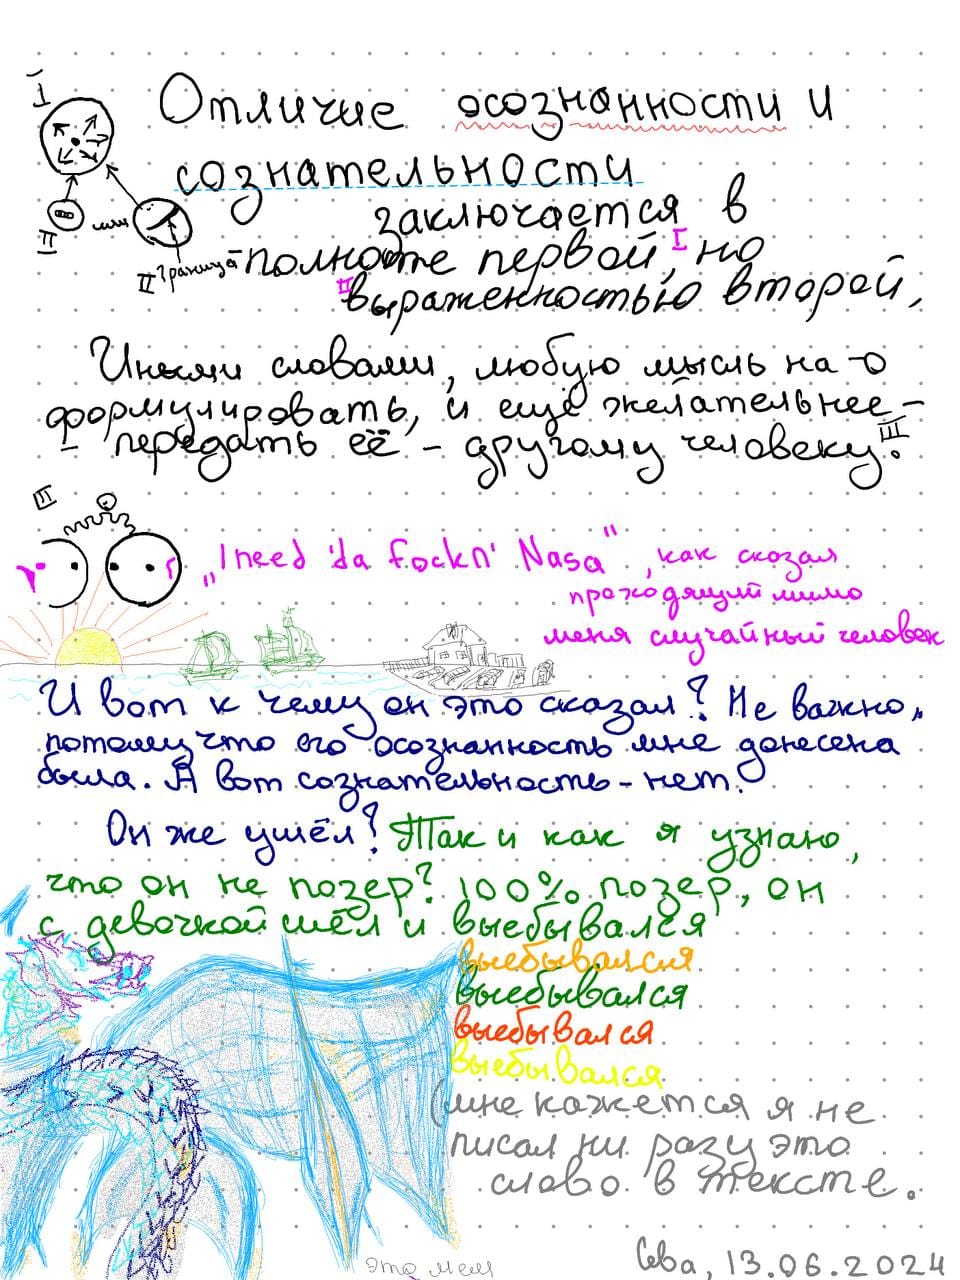 I
Отличие осознанности и
сознательности
заключается в
II
или
II граница
полноте первой, I но
II выраженностью второй,
Иными словами, любую мысль на-о
формулировать, и ещё желательнее -
- передать её - другому человеку. III
III
„I need 'da fockn' Nasa", как сказал
проходящий мимо
меня случайный человек
И вот к чему он это сказал? Не важно,
потому что его осознанность мне донесена
была. А вот сознательность - нет.
Он же ушёл? Так и как я узнаю,
что он не позер? 100% позер, он
с девочкой шёл и выебывался
выебывался
выебывался
выебывался
выебывался
(мне кажется я не
писал ни разу это
слово в тексте.
Сева, 13.06.2024
это мем